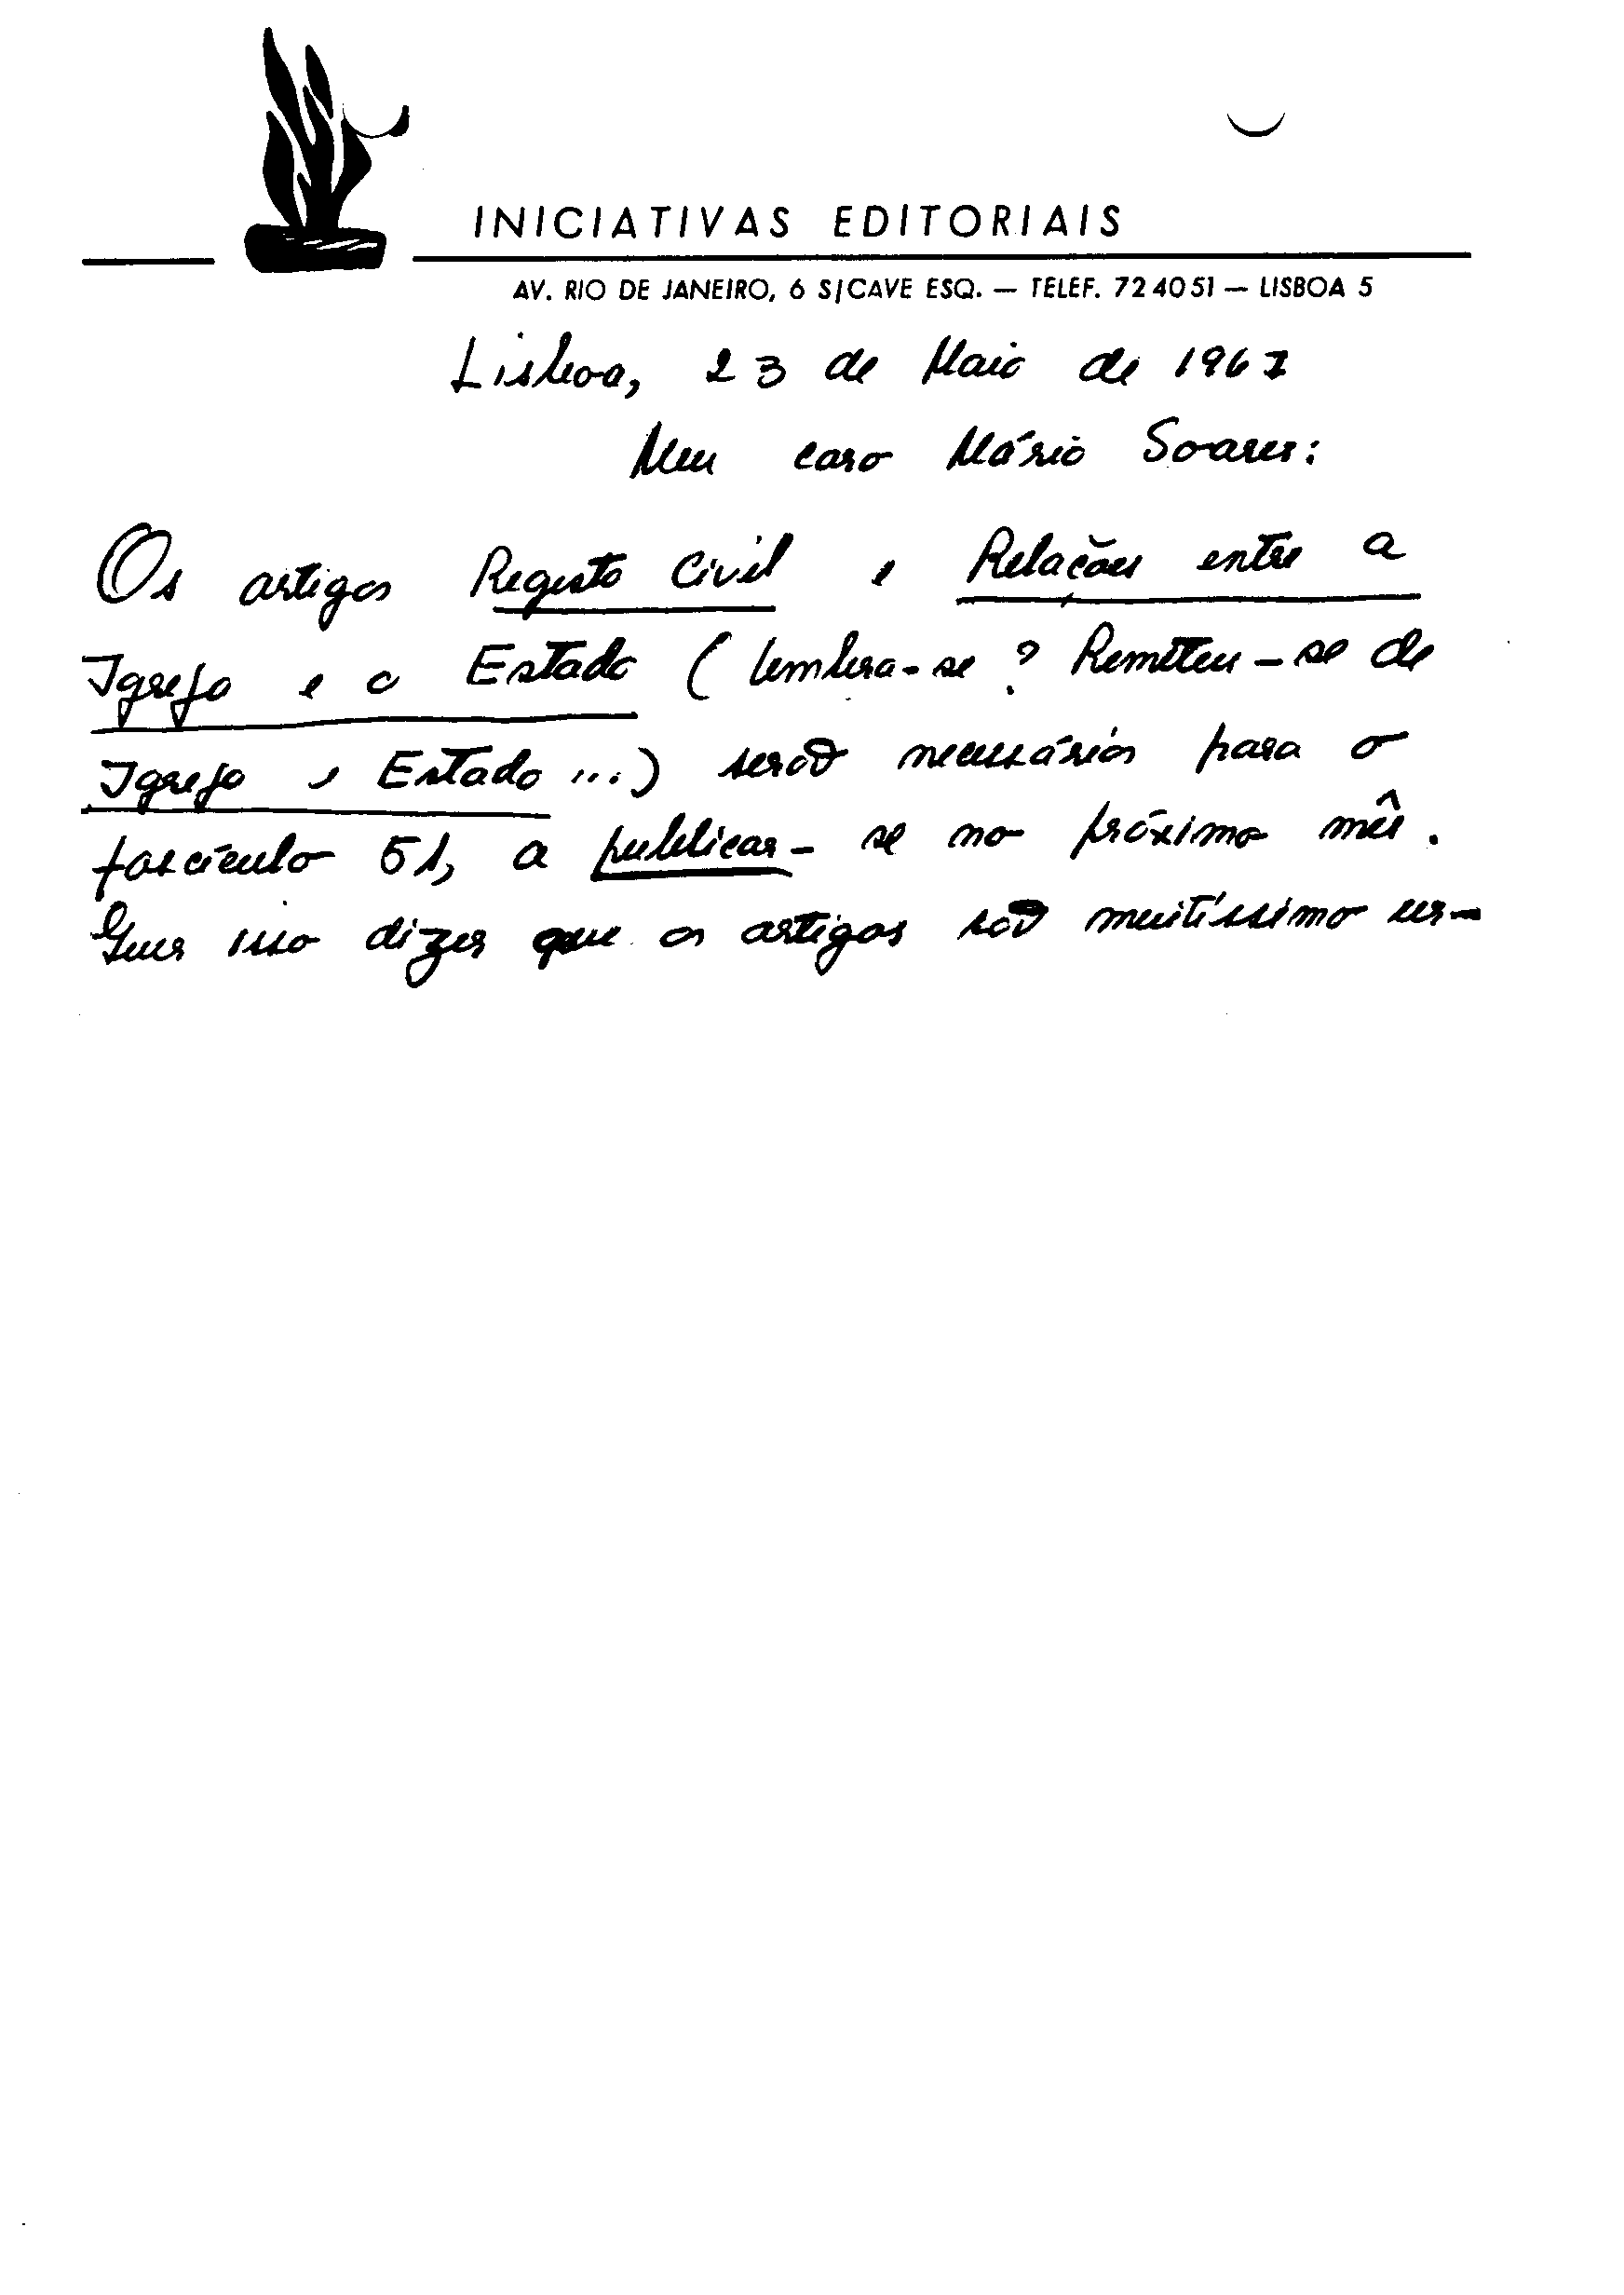 INICIATIVAS EDITORIAIS
AV. RIO DE JANEIRO, 6 S/CAVE ESQ. — TELEF. 72 40 51 — LISBOA 5
Lisboa, 23 de Maio de 1967
Meu caro Mário Soares:
Os artigos Registo Civil e Relações entre a
Igreja e o Estado (lembra-se? Remeteu-se de
Igreja e Estado...) serão necessários para o
fascículo 51, a publicar-se no próximo mês.
Quer isso dizer que os artigos são muitíssimo ur-